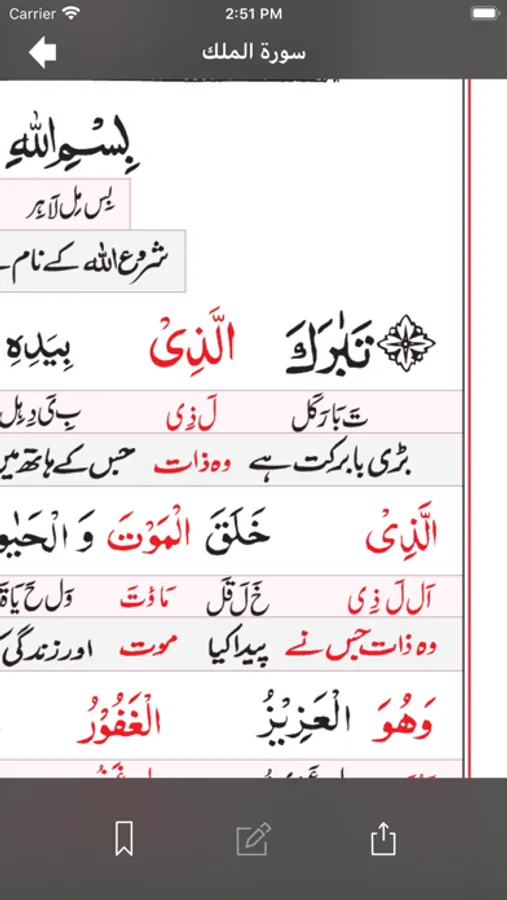 Carrier 2:51 PM
سورة الملك
بِسْمِ اللهِ
بِس مِل لَا هِر
شروع اللہ کے نام
تَبٰرَكَ الَّذِیْ بِیَدِهِ
تَ بَا رَ کَل لَ ذِی بِ یَ دِ ہِل
بڑی بابرکت ہے وہ ذات جس کے ہاتھ میں
الَّذِیْ خَلَقَ الْمَوْتَ وَ الْحَیٰو
اَل لَ ذِی خَ لَ قَل مَا وْتَ وَل حَ یَا ةَ
وہ ذات جس نے پیدا کیا موت اور زندگی
وَهُوَ الْعَزِیْزُ الْغَفُوْرُ